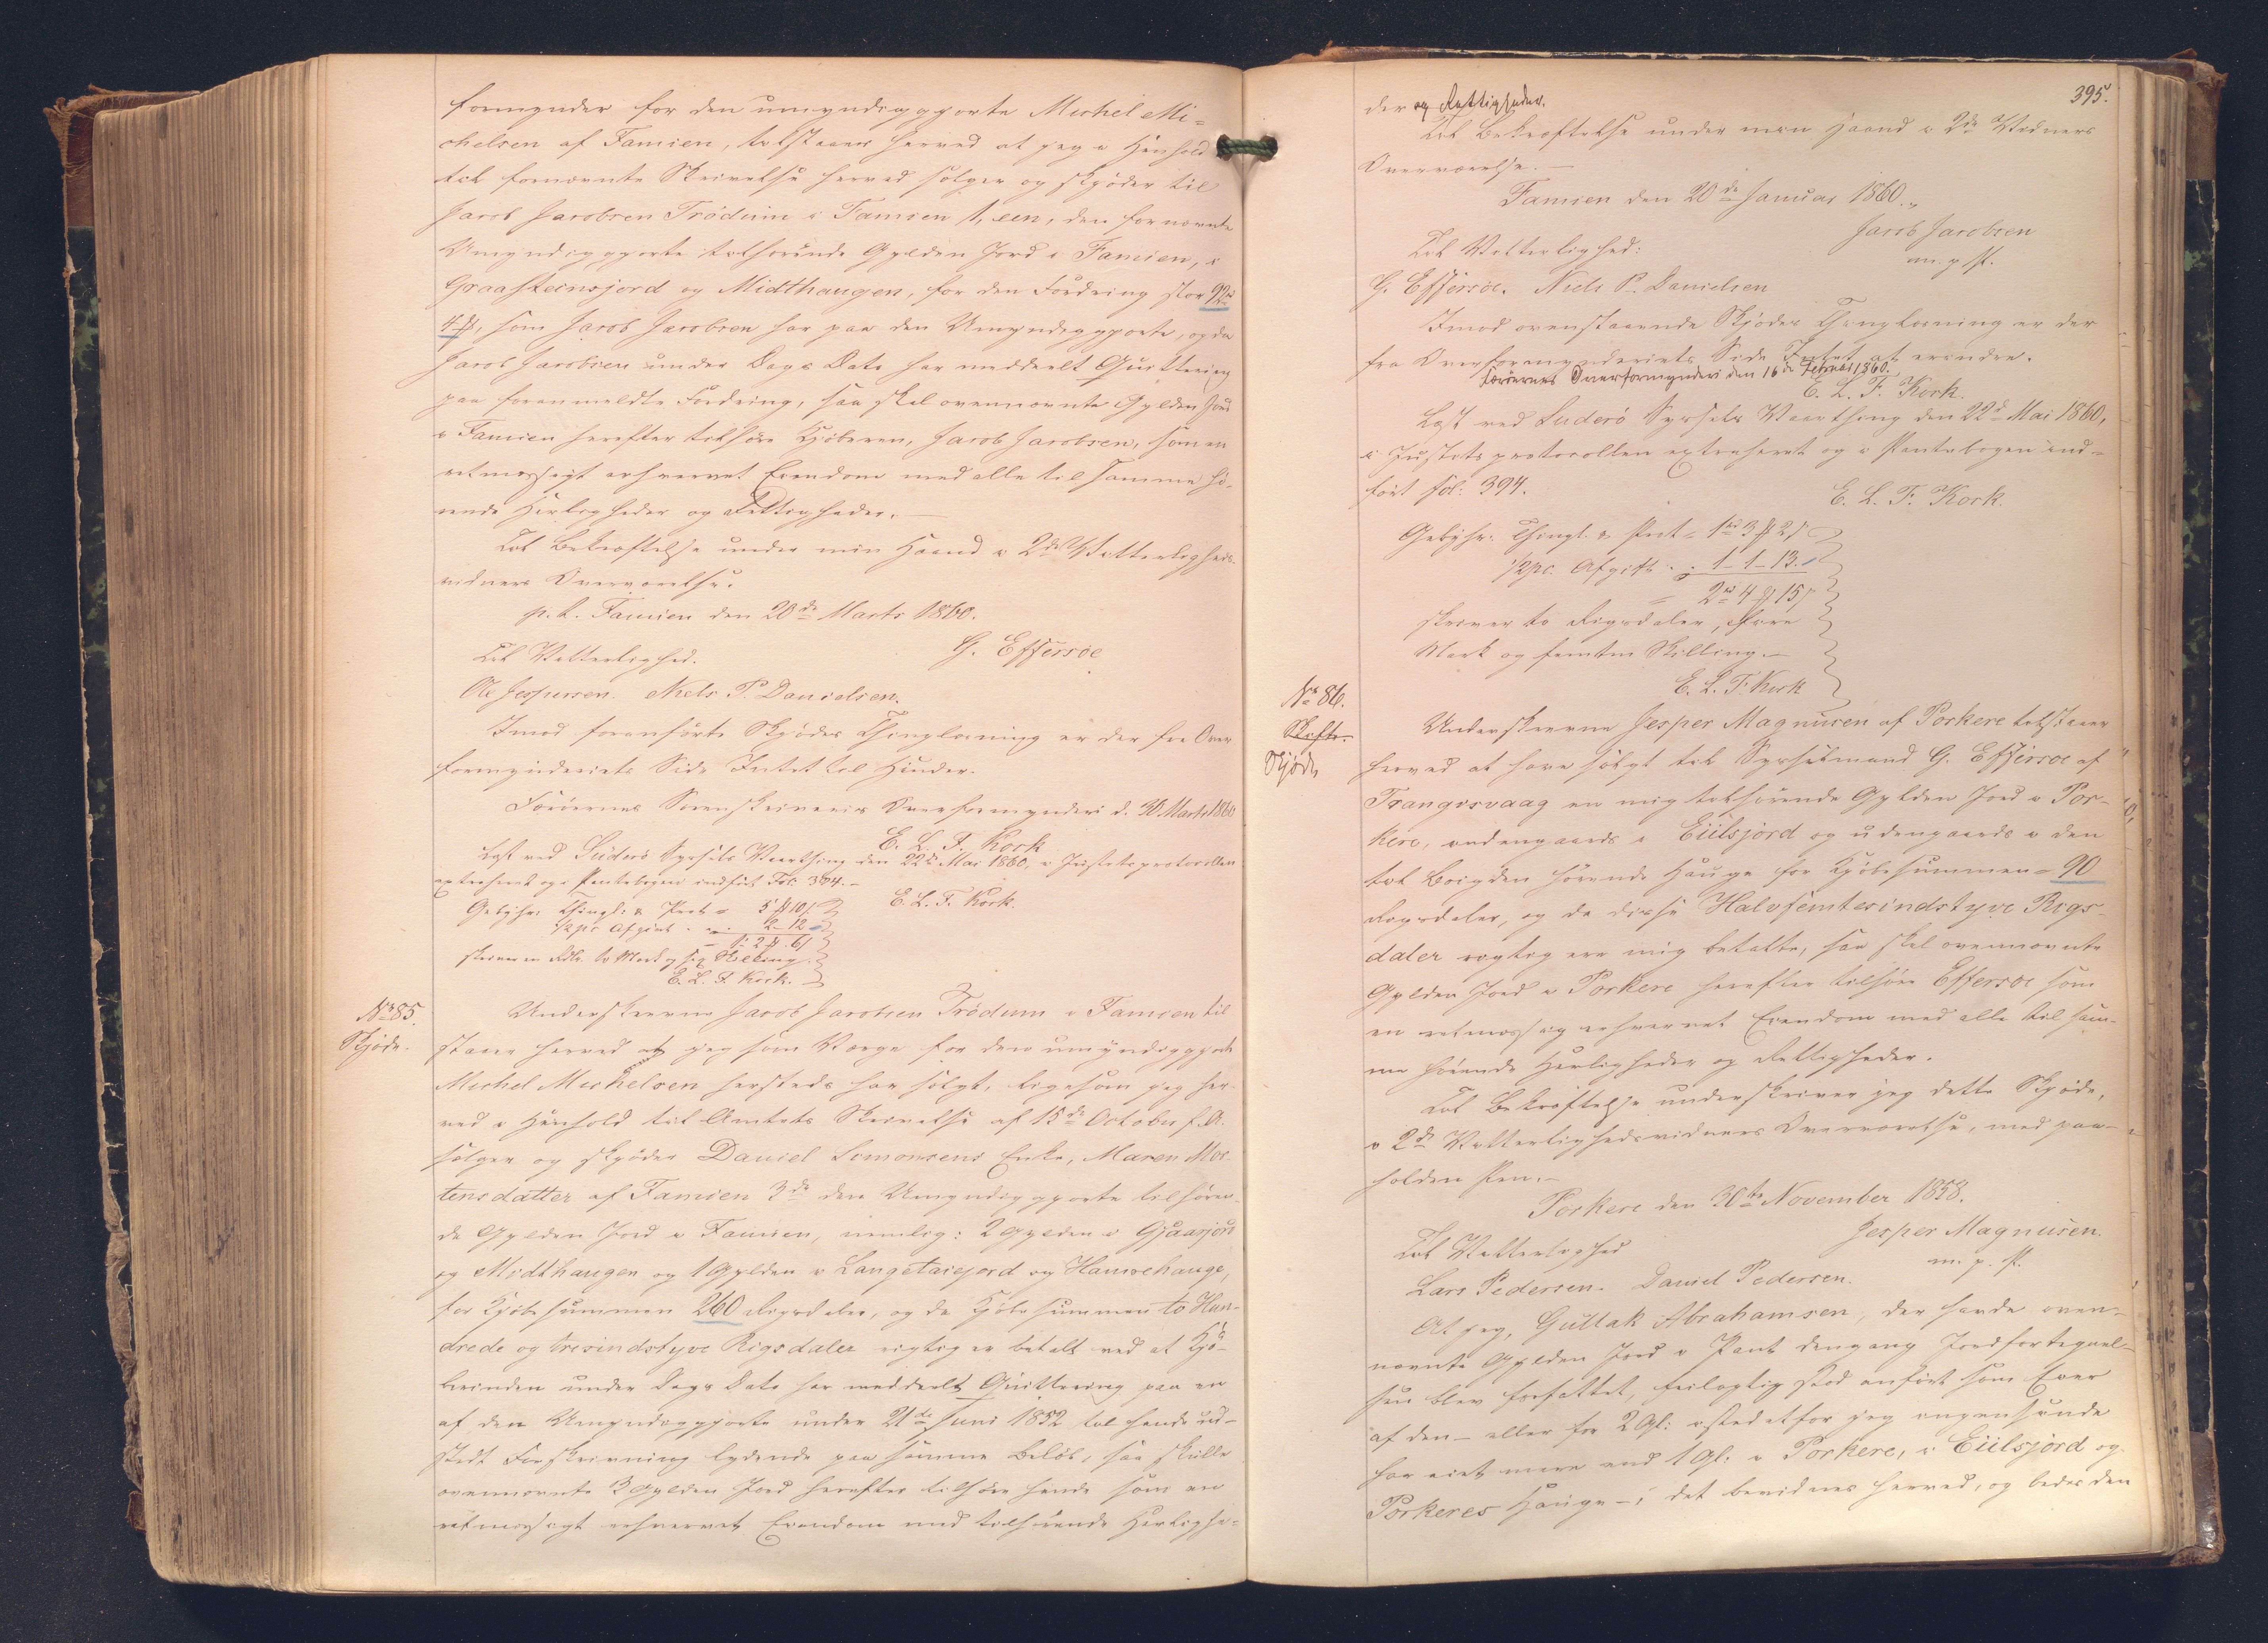 Formynder for den umyndiggjorte Michel Mi-
chelsen af Famien, tilstaaer herved at jeg i Henhold
til fornævnte Skrivelse herved sælger og skjøder til
Jacob Jacobsen Trödum i Famien 1, een, den fornævnte
Umyndiggjorte tilhørende Gylden Jord i Famien, i
Graasteinsjord og Midthaugen, for den Fordring stor 92 rd
4 ß, som Jacob Jacobsen har paa den Umyndiggjorte, og da
Jacob Jacobsen under Dags Dato har meddeelt Quittering
paa foranmeldte Fordring, saa skal ovennævnte Gylden Jord
i Famien herefter tilhøre Kjøberen, Jacob Jacobsen, som en
retmæssigt erhvervet Eiendom med alle til samme hø-
rende Herligheder og Rettigheder.
Til Bekræftelse under min Haand i 2de Vitterligheds-
vidners Overværelse.
p. t. Famien den 20de Marts 1860.
G. Effersøe
Til Vitterlighed.
Ole Jespersen. Niels P. Danielsen.
Imod foranførte Skjødes Thinglæsning er der fra Over
formynderiets Side Intet til Hinder.
Færöernes Sorenskriveri's Overformynderi d. 30 Marts 1860
E. L. F. Kock
Læst ved Suderö Syssels Vaarthing den 22de Mai 1860, i Justitsprotocollen
extraheret og i Pantebogen indført Fol: 394.
E. L. F. Kock.
Gebyhr: Thingl: & Prot = 5 ß 10 s
1/2 pc Afgivt - 2 - 12
1: 2 ß. 6 s
skriver en Rdlr. to Mark og sex Skilling.
E. L. F. Kock.
No 85.
Skjøde.
Underskrevne Jacob Jacobsen Trödum i Famien til
staaer herved at jeg som Værge for den umyndiggjorte
Michel Michelsen hersteds har solgt, ligesom jeg her-
ved i Henhold til Amtets Skrivelse af 15de October f. A.
sælger og skjøder Daniel Simonsens Enke, Maren Mor-
tensdatter af Famien 3de den Umyndiggjorte tilhøren-
de Gylden Jord i Famien, nemlig: 2 Gylden i Gjaarjord
og Midthaugen og 1 Gylden i Langetaiejord og Hamrehauge,
for Kjøbesummen 260 Rigsdaler, og da Kjøbesummen to Hun-
drede og tresindstyve Rigsdaler rigtig er betalt ved at Kjø-
berinden under Dags Dato har meddeelt Quittering paa en
af den Umyndiggjorte under 21de Juni 1852 til hende ud-
stedt Forskrivning lydende paa samme Beløb, saa skulle
ovennævnte 3 Gylden Jord herefter tilhøre hende som en
retmæssigt erhvervet Eiendom med tilhørende Herlighe-
395.
der og Rettigheder.
Til Bekræftelse under min Haand i 2de Vidners
Overværelse.
Famien den 20de Januar 1860.
Jacob Jacobsen
m. p. P.
Til Vitterlighed:
G. Effersöe. Niels P. Danielsen
Imod ovenstaaende Skjødes Thinglæsning er der
fra Overformynderiets Side Intet at erindre.
Færöernes Overformynderi den 16de Februar 1860.
E. L. F. Kock.
Læst ved Suderö Syssels Vaarthing den 22de Mai 1860,
i Justitsprotocollen extraheret og i Pantebogen ind-
ført fol: 394.
E. L. F. Kock.
Gebyhr: Thingl. & Prot = 1 rd 3 ß 2 s
1/2 pc. Afgift - 1 - 1 - 13.
= 2 rd 4 ß 15 s
skriver to Rigsdaler, fire
Mark og femten Skilling.
E. L. F. Kock
No 86.
Skifte.
Skjøde
Underskrevne Jesper Magnusen af Porkere tilstaaer
herved at have solgt til Sysselmand G. Effersöe af
Trangisvaag en mig tilhørende Gylden Jord i Por-
kere, indengaards i Eiilsjord og udengaards i den
til Bøigden hørende Hauge for Kjøbesummen = 90
Rigsdaler, og da disse Halvfemtesindstyve Rigs-
daler rigtig ere mig betalte, saa skal ovennævnte
Gylden Jord i Porkere herefter tilhøre Effersöe som
en retmæssig erhvervet Eiendom med alle til sam-
me hørende Herligheder og Rettigheder.
Til Bekræftelse underskriver jeg dette Skjøde,
i 2de Vitterlighedsvidners Overværelse, med paa-
holden Pen.
Porkere den 30te November 1858.
Jesper Magnusen.
m. p. P.
Til Vitterlighed
Lars Pedersen. Daniel Pedersen.
At jeg, Guttak Abrahamsen, der havde oven-
nævnte Gylden Jord i Pant dengang Jordfortegnel-
sen blev forfattet, feilagtig stod anført som Eier
af den - eller for 2 Gl: istedetfor jeg ingensinde
har eiet mere end 1 Gl: i Porkere, i Eiilsjord og
Porkeres Hauge -; det bevidnes herved, og bedes den